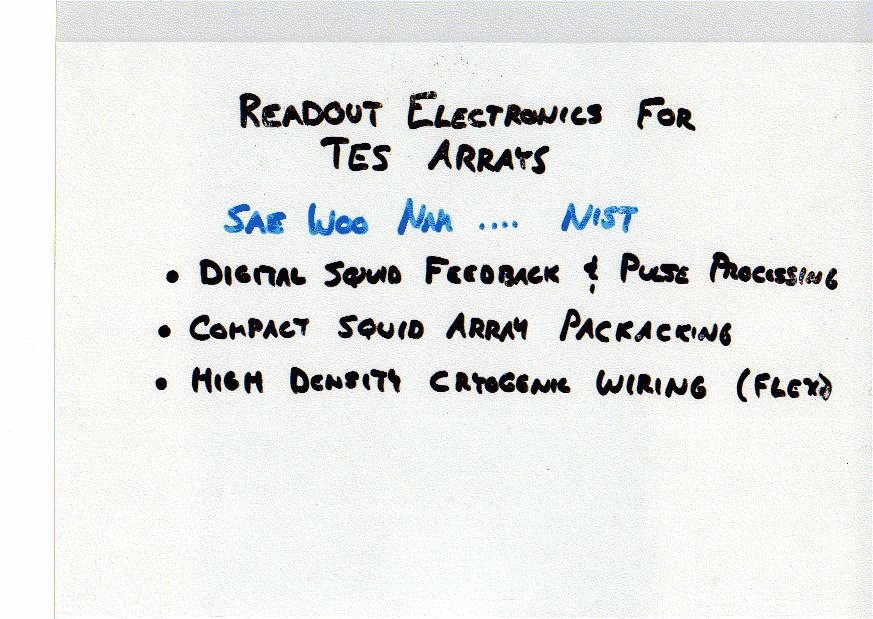 READOUT ELECTRONICS FOR
TES ARRAYS
SAE WOO NAM .... NIST
• DIGITAL SQUID FEEDBACK & PULSE PROCESSING
• COMPACT SQUID ARRAY PACKACKING
• HIGH DENSITY CRYOGENIC WIRING (FLEX)